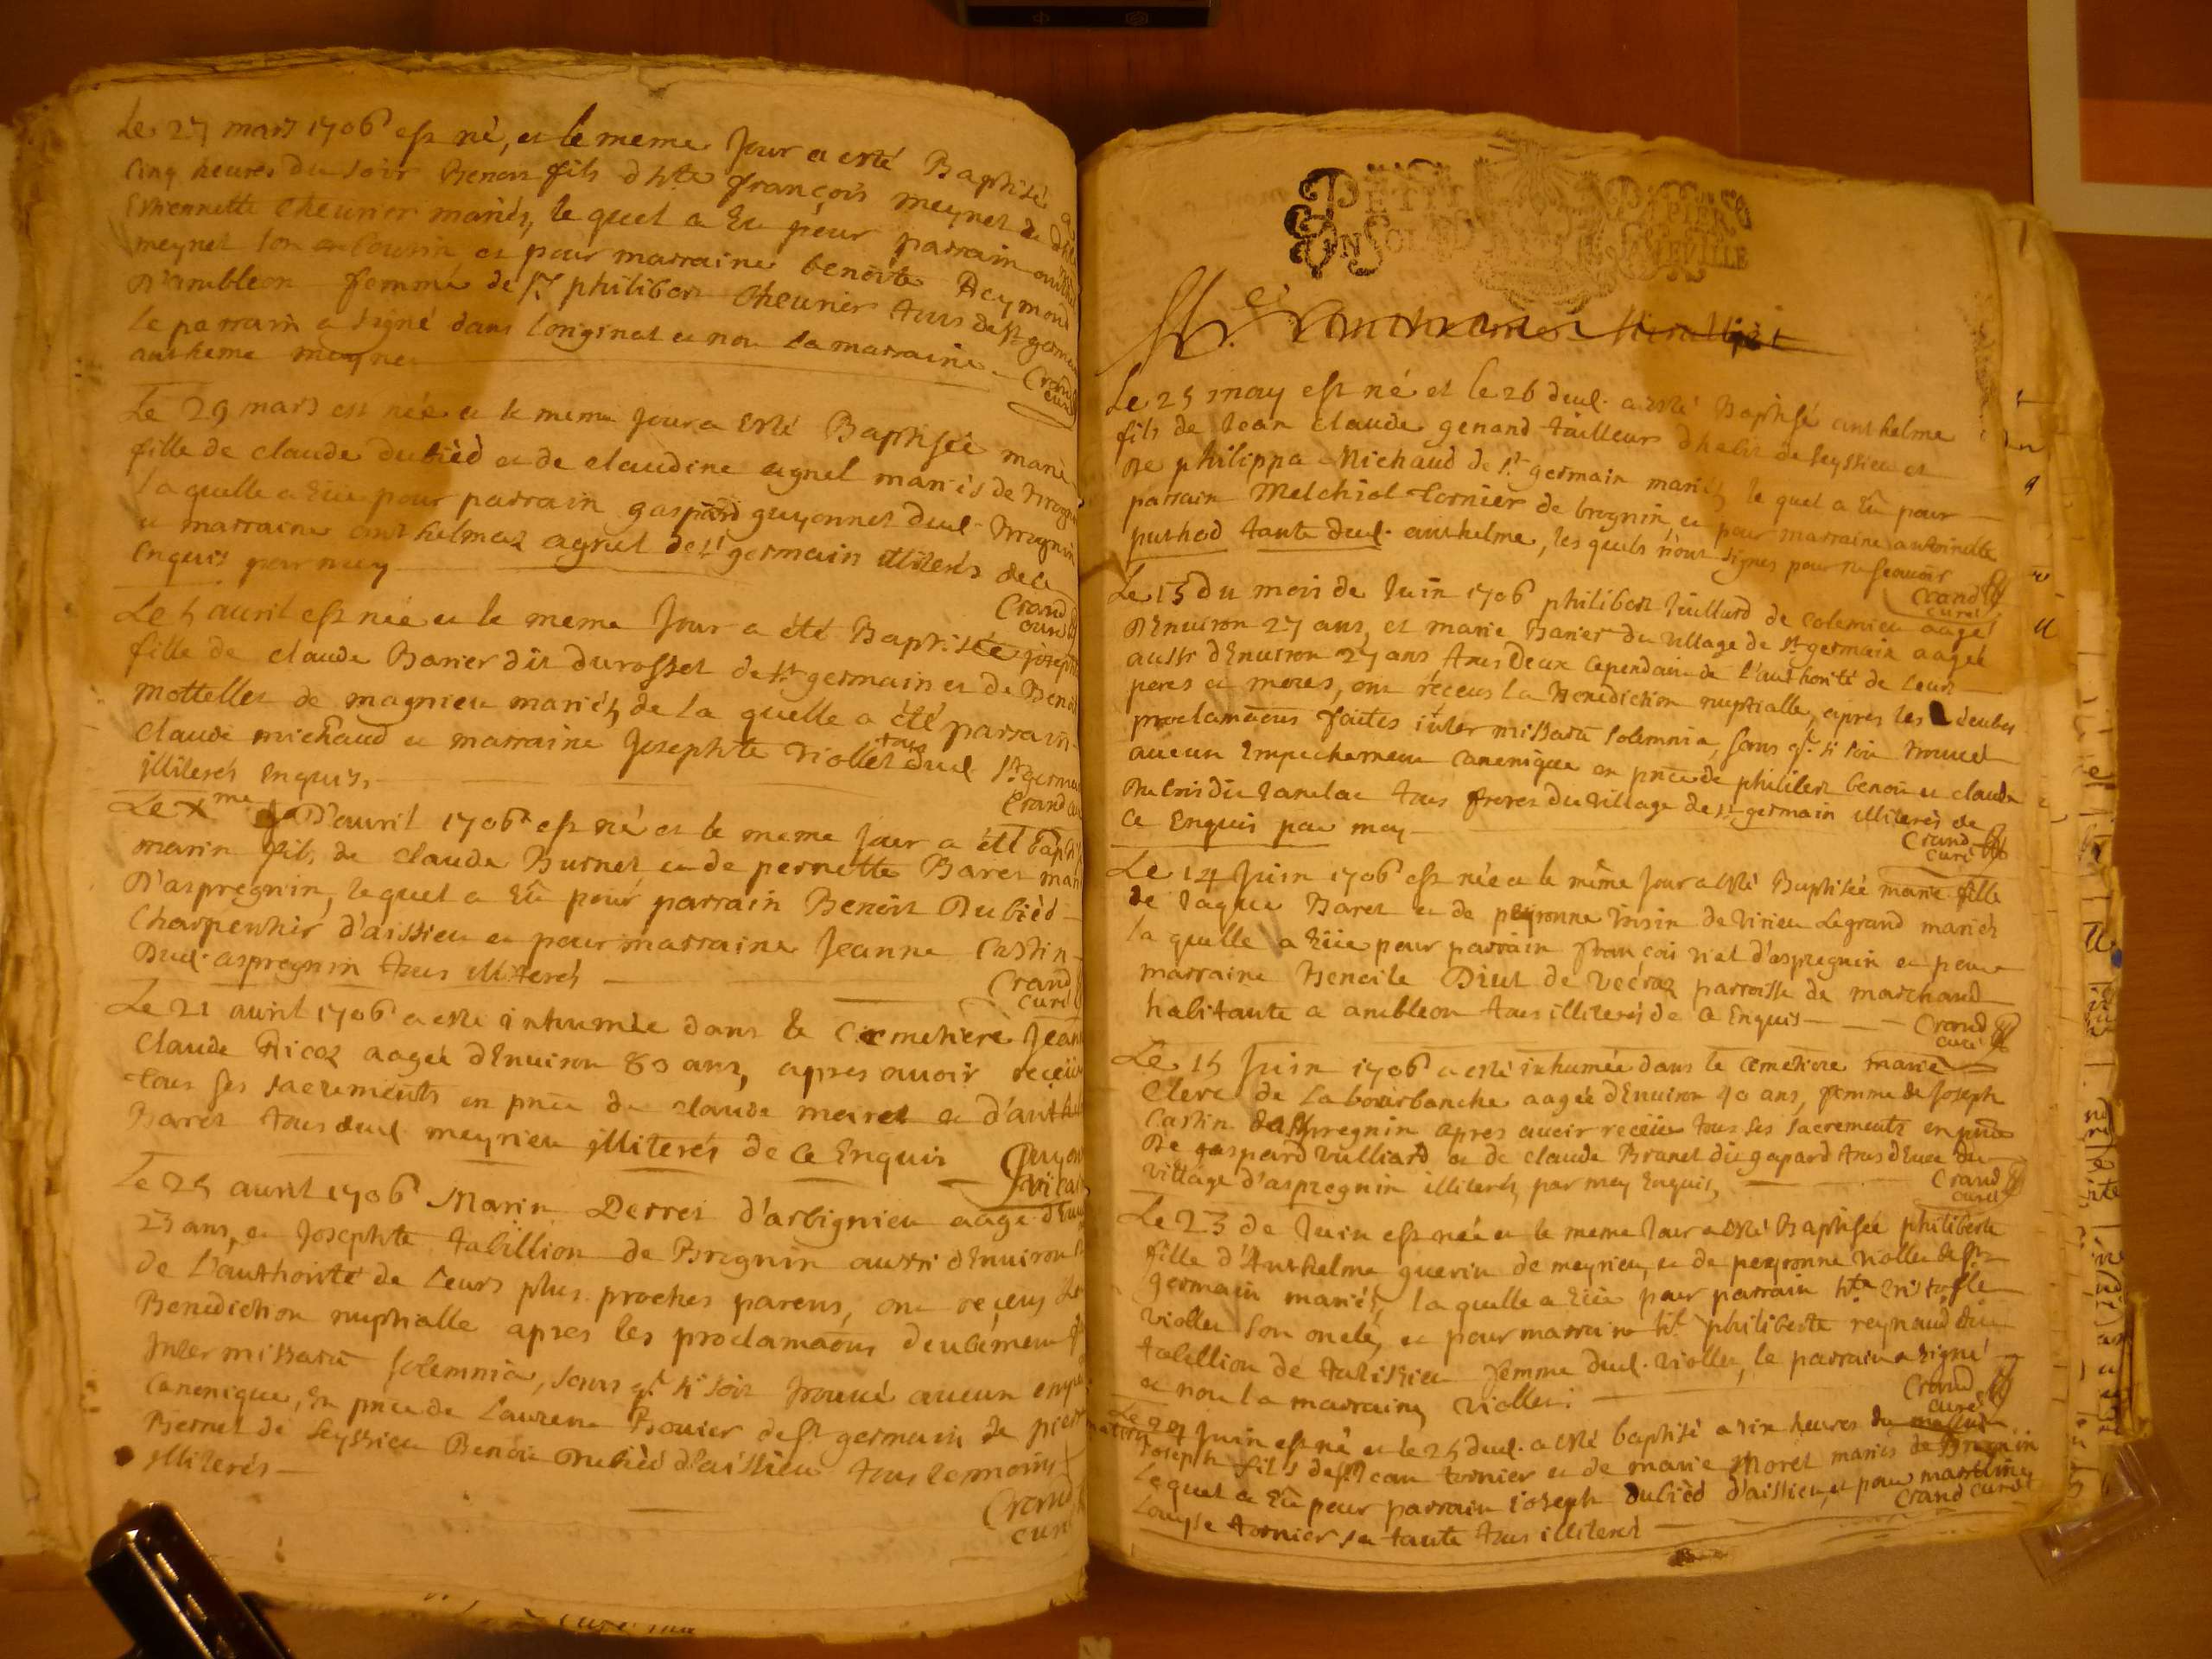 Le 27 mars 1706 est né, et le meme Jour a esté Baptisé a
cinq heures du soir Benoit fils d'hte françois meynet de
Estiennette Cheurier mariés, le quel a Eu pour parrain
meynet son et pour marraine benoite Reymond
D'ambleon femme de Sr philibert Cheurier tous de st germ
le parrain a signé dans l'original et non la marraine
anthleme meynet
Crand
curé
Le 29 mars est née et le meme Jour a Esté Baptisée marie
fille de claude dubièd et de claudine agnel mariés de
la quelle a Eüe pour parrain gaspard guyonnet dud. Brognin
et marraine anthelmaz agnel de st germain illiterés de ce
Enquis par moy
Crand
curé
Le 5 auril est née et le meme Jour a été Baptisée joseph
fille de claude Barier dit durosset de st germain et de Benoi
mottellet de magnieu mariés, de la quelle a été parrain
claude michaud et marraine Josephte Viollet tous dud. St germa
illiterés Enquis.
Crand cu
Le Xme D'auril 1706 est né et le meme jour a été bapti
marin fils de claude Burnet et de pernette Baret mari
D'aspregnin, le quel a Eû pour parrain Benoit Dubièd
Charpentiér d'aissieu et pour marraine Jeanne Castin
Dud. aspregnin tous illiterés
Crand
curé
Le 21 auril 1706 a esté inhumée dans le Cemetiere Jean
Claude Ricoz aagée d'Enuiron 80 ans, apres auoir receüe
tous ses sacrements en pnce de claude meiret et d'anthe
Baret tous dud. meyrieu illiterés de ce Enquis
Guyon
vicai
Le 25 auril 1706 Marin Derret d'arbignieu aagé d'Enui
23 ans, et Josephte tabillion de Brognin aussi d'Enuiron
de l'authorité de leurs plus proches parens, ont reçeus la
Benediction nuptialle apres les proclamaons deubement
Inter missaru solemnia, sans qt si soit trouué aucun emp
Canonique, En pnce de Laurent Bouier de st germain de pierre
Bernet de seyssieu Benoit Dubièd d'aissieu tous temoins
illiterés
Crand
curé
PETIT PAPIER
UN SOL LA FEUILLE
Le 25 may est né et le 26 dud. a esté Baptisé anthelme
fils de Jean Claude genand tailleur d'habit de seyssieu et
De philippa Michaud de st germain mariés, le quel a Eû pour
parrain Melchiol tornier de brognin, et pour marraine antoinette
puthod tante dud. anthelme, les quels n'ont signes pour ne scauoir
Crand
curé
Le 15 du mois de Juin 1706 philibert Juillard de colomieu aagé
D'Enuiron 27 ans, et marie Barier du village de st germain aagée
aussi d'Enuiron 27 ans tous deux cependans de l'authorité de leurs
peres et meres, ont réçeus la Benediction nuptialle, apres les deubes
proclamaons faites inter missaru solemnia, sans qt si soit trouué
aucun Empechement canonique en pnce de philibert benoit et claude
tous freres du village de st germain illiterés de
ce Enquis par moy
Crand
curé
Le 14 Juin 1706 est née et le même jour a esté Baptisée marie fille
de Jaque Baret et de peyronne Voisin de Virieu Legrand mariés
la quelle a Eüe pour parrain françois viat d'aspregnin et pour
marraine Benoite Diut de Vecraz parroisse de marchand
habitante a ambleon tous illiterés de ce Enquis
Crand
curé
Le 15 Juin 1706 a esté inhumée dans le cemetiere marie
Clerc de Labourbanche aagée d'Enuiron 40 ans, femme de Joseph
Castin d'aspregnin apres auoir receüe tous ses sacrements en pnce
De gaspard vulliard et de claude Brunet dit gapard tous deux du
village d'aspregnin illiterés par moy Enquis,
Crand
curé
Le 23 de Juin est née et le meme Jour a esté Baptisée philiberte
fille d'Anthelme guerin de meyrieu, et de peyronne viollet de st
germain mariés, la quelle a Eüe pour parrain hte cristofle
viollet son oncle, et pour marraine ht philiberte reynaud dit
tabillion de talissieu femme dud. viollet, le parrain a signé
et non la marraine Viollet.
Crand
curé
Le 24 Juin est né et le 25 dud. a esté baptisé a six heures du matin
matin Joseph fils de st Jean tornier et de marie Moret mariés de Brognin
le quel a Eû pour parrain Joseph dubièd d'aissieu, et pour marraine
Louyse tornier sa tante tous illiterés
Crand curé